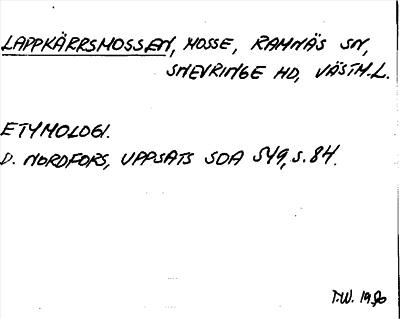 LAPPKÄRRSMOSSEN, MOSSE, RAMNÄS SN,
SNEVRINGE HD, VÄSTM.L.
ETYMOLOGI.
D. NORDFORS, UPPSATS SOA 549, S. 84.
T.W. 1990